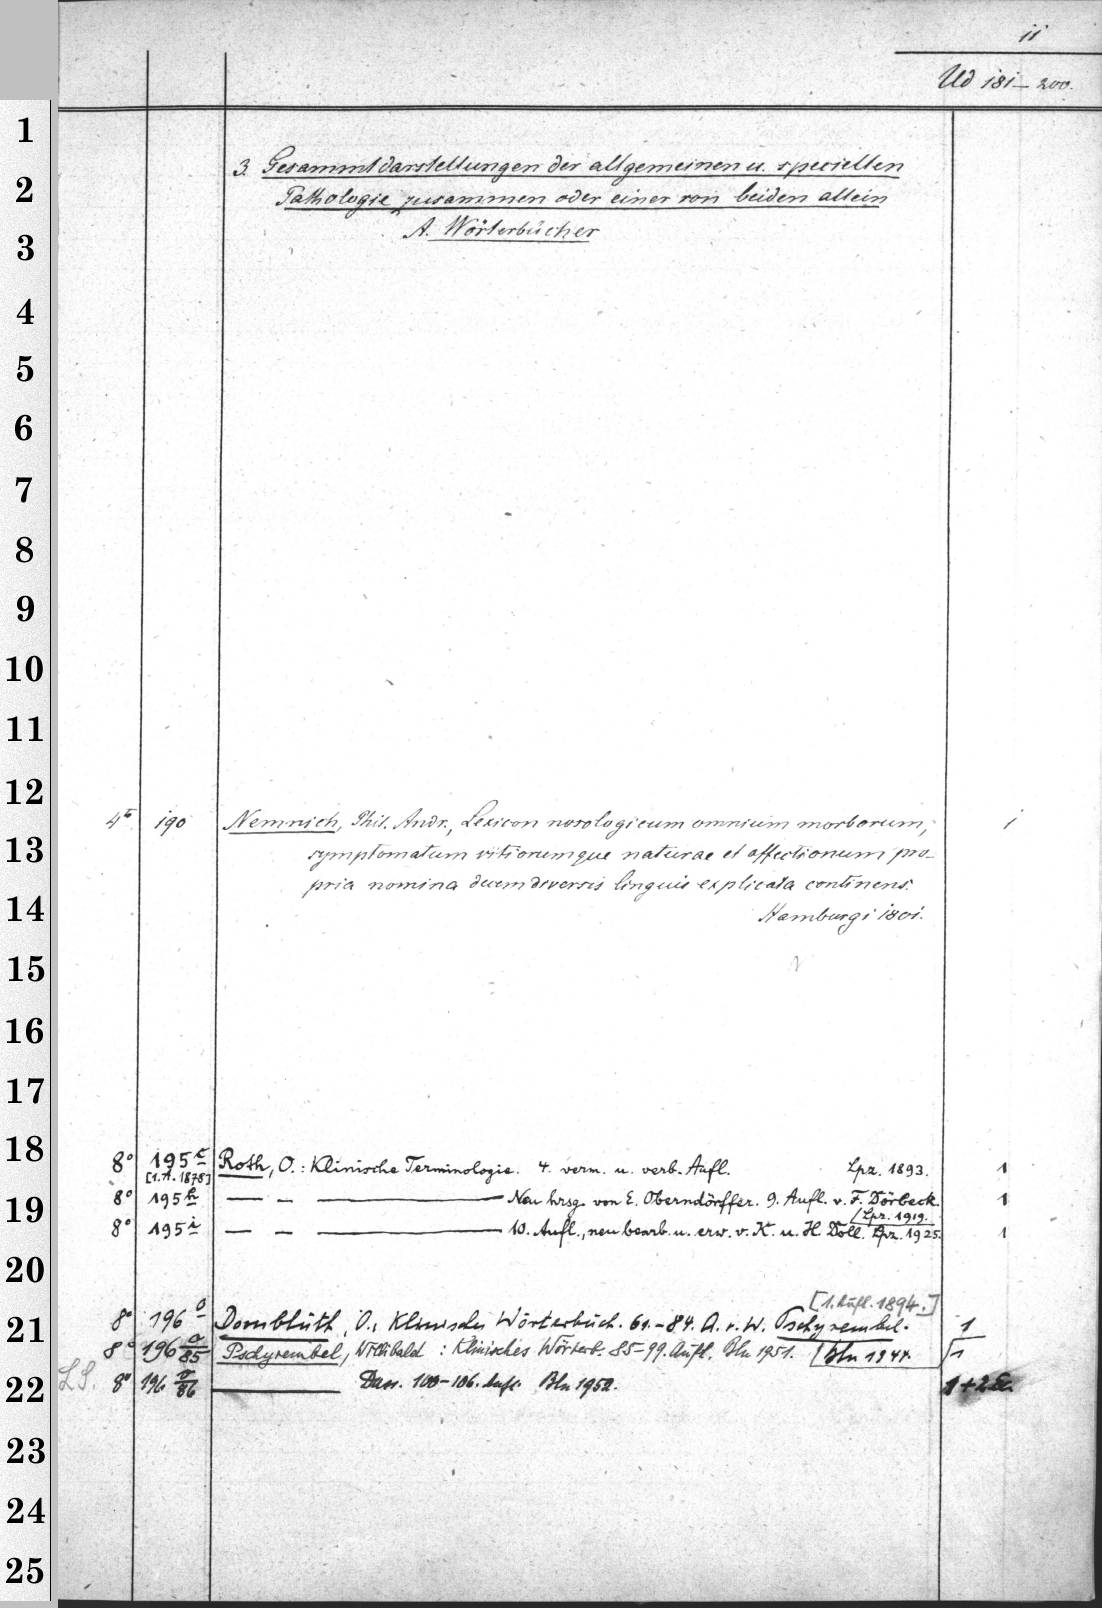 11
Ud 181–200.
3. Gesammtdarstellungen der allgemeinen u. speciellen
Pathologie zusammen oder einer von beiden allein
A. Wörterbücher
4° 190 Nemnich, Phil. Andr., Lexicon nosologicum omnium morborum, 1
symptomatum vitiorumque naturae et affectionum pro-
pria nomina decem diversis linguis explicata continens.
Hamburgi 1801.
8° 195 c Roth, O.: Klinische Terminologie. 4. verm. u. verb. Aufl. Lpz. 1893. 1
[1. A. 1878]
8° 195 h — – — Neu hrsg. von E. Oberndörffer. 9. Aufl. v. F. Dörbeck. 1
/Lpz. 1919.
8° 195 i — – — 10. Aufl., neu bearb. u. erw. v. K. u. H. Doll. Lpz. 1925. 1
[1. Aufl. 1894.]
8° 196 o Dornblüth, O., Klinisches Wörterbuch. 61.–84. A. v. W. Pschyrembel. 1
/Bln 1944.
8° 196 o/85 Pschyrembel, Willibald: Klinisches Wörterb. 85–99. Aufl. Bln 1951. 1
LS. 8° 196 o/86 — Dass. 100–106. Aufl. Bln 1952. 1+2 Ex.
1
2
3
4
5
6
7
8
9
10
11
12
13
14
15
16
17
18
19
20
21
22
23
24
25